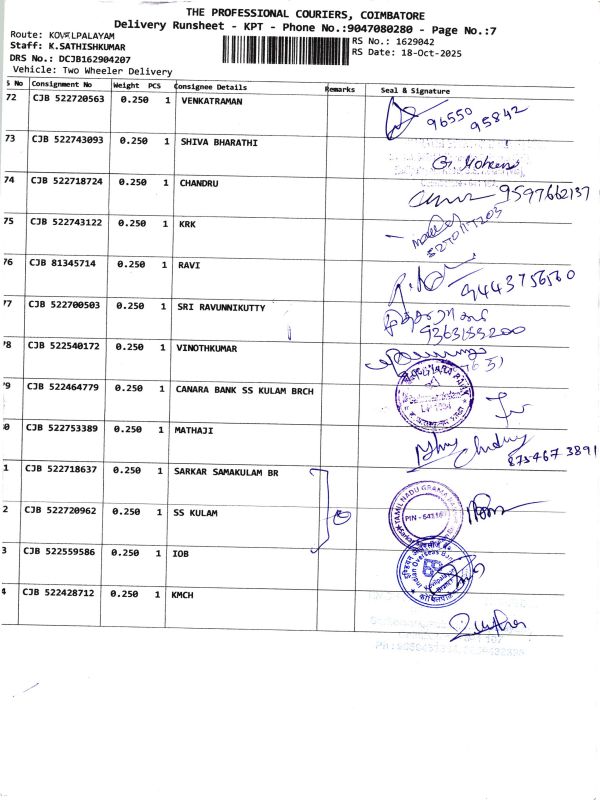 THE PROFESSIONAL COURIERS, COIMBATORE
Delivery Runsheet - KPT - Phone No.:9047080280 - Page No.:7
Route: KOVILPALAYAM
Staff: K.SATHISHKUMAR
DRS No.: DCJB162904207
Vehicle: Two Wheeler Delivery
RS No.: 1629042
RS Date: 18-Oct-2025
S No Consignment No Weight PCS Consignee Details Remarks Seal & Signature
72 CJB 522720563 0.250 1 VENKATRAMAN 96550 95842
73 CJB 522743093 0.250 1 SHIVA BHARATHI
74 CJB 522718724 0.250 1 CHANDRU 9597662137
75 CJB 522743122 0.250 1 KRK
76 CJB 81345714 0.250 1 RAVI 9443756560
77 CJB 522700503 0.250 1 SRI RAVUNNIKUTTY 9363153200
78 CJB 522540172 0.250 1 VINOTHKUMAR
79 CJB 522464779 0.250 1 CANARA BANK SS KULAM BRCH
0 CJB 522753389 0.250 1 MATHAJI 875467 3891
1 CJB 522718637 0.250 1 SARKAR SAMAKULAM BR
2 CJB 522720962 0.250 1 SS KULAM
TAMIL NADU GRAMA BANK
3 CJB 522559586 0.250 1 IOB
Indian Overseas Bank
4 CJB 522428712 0.250 1 KMCH